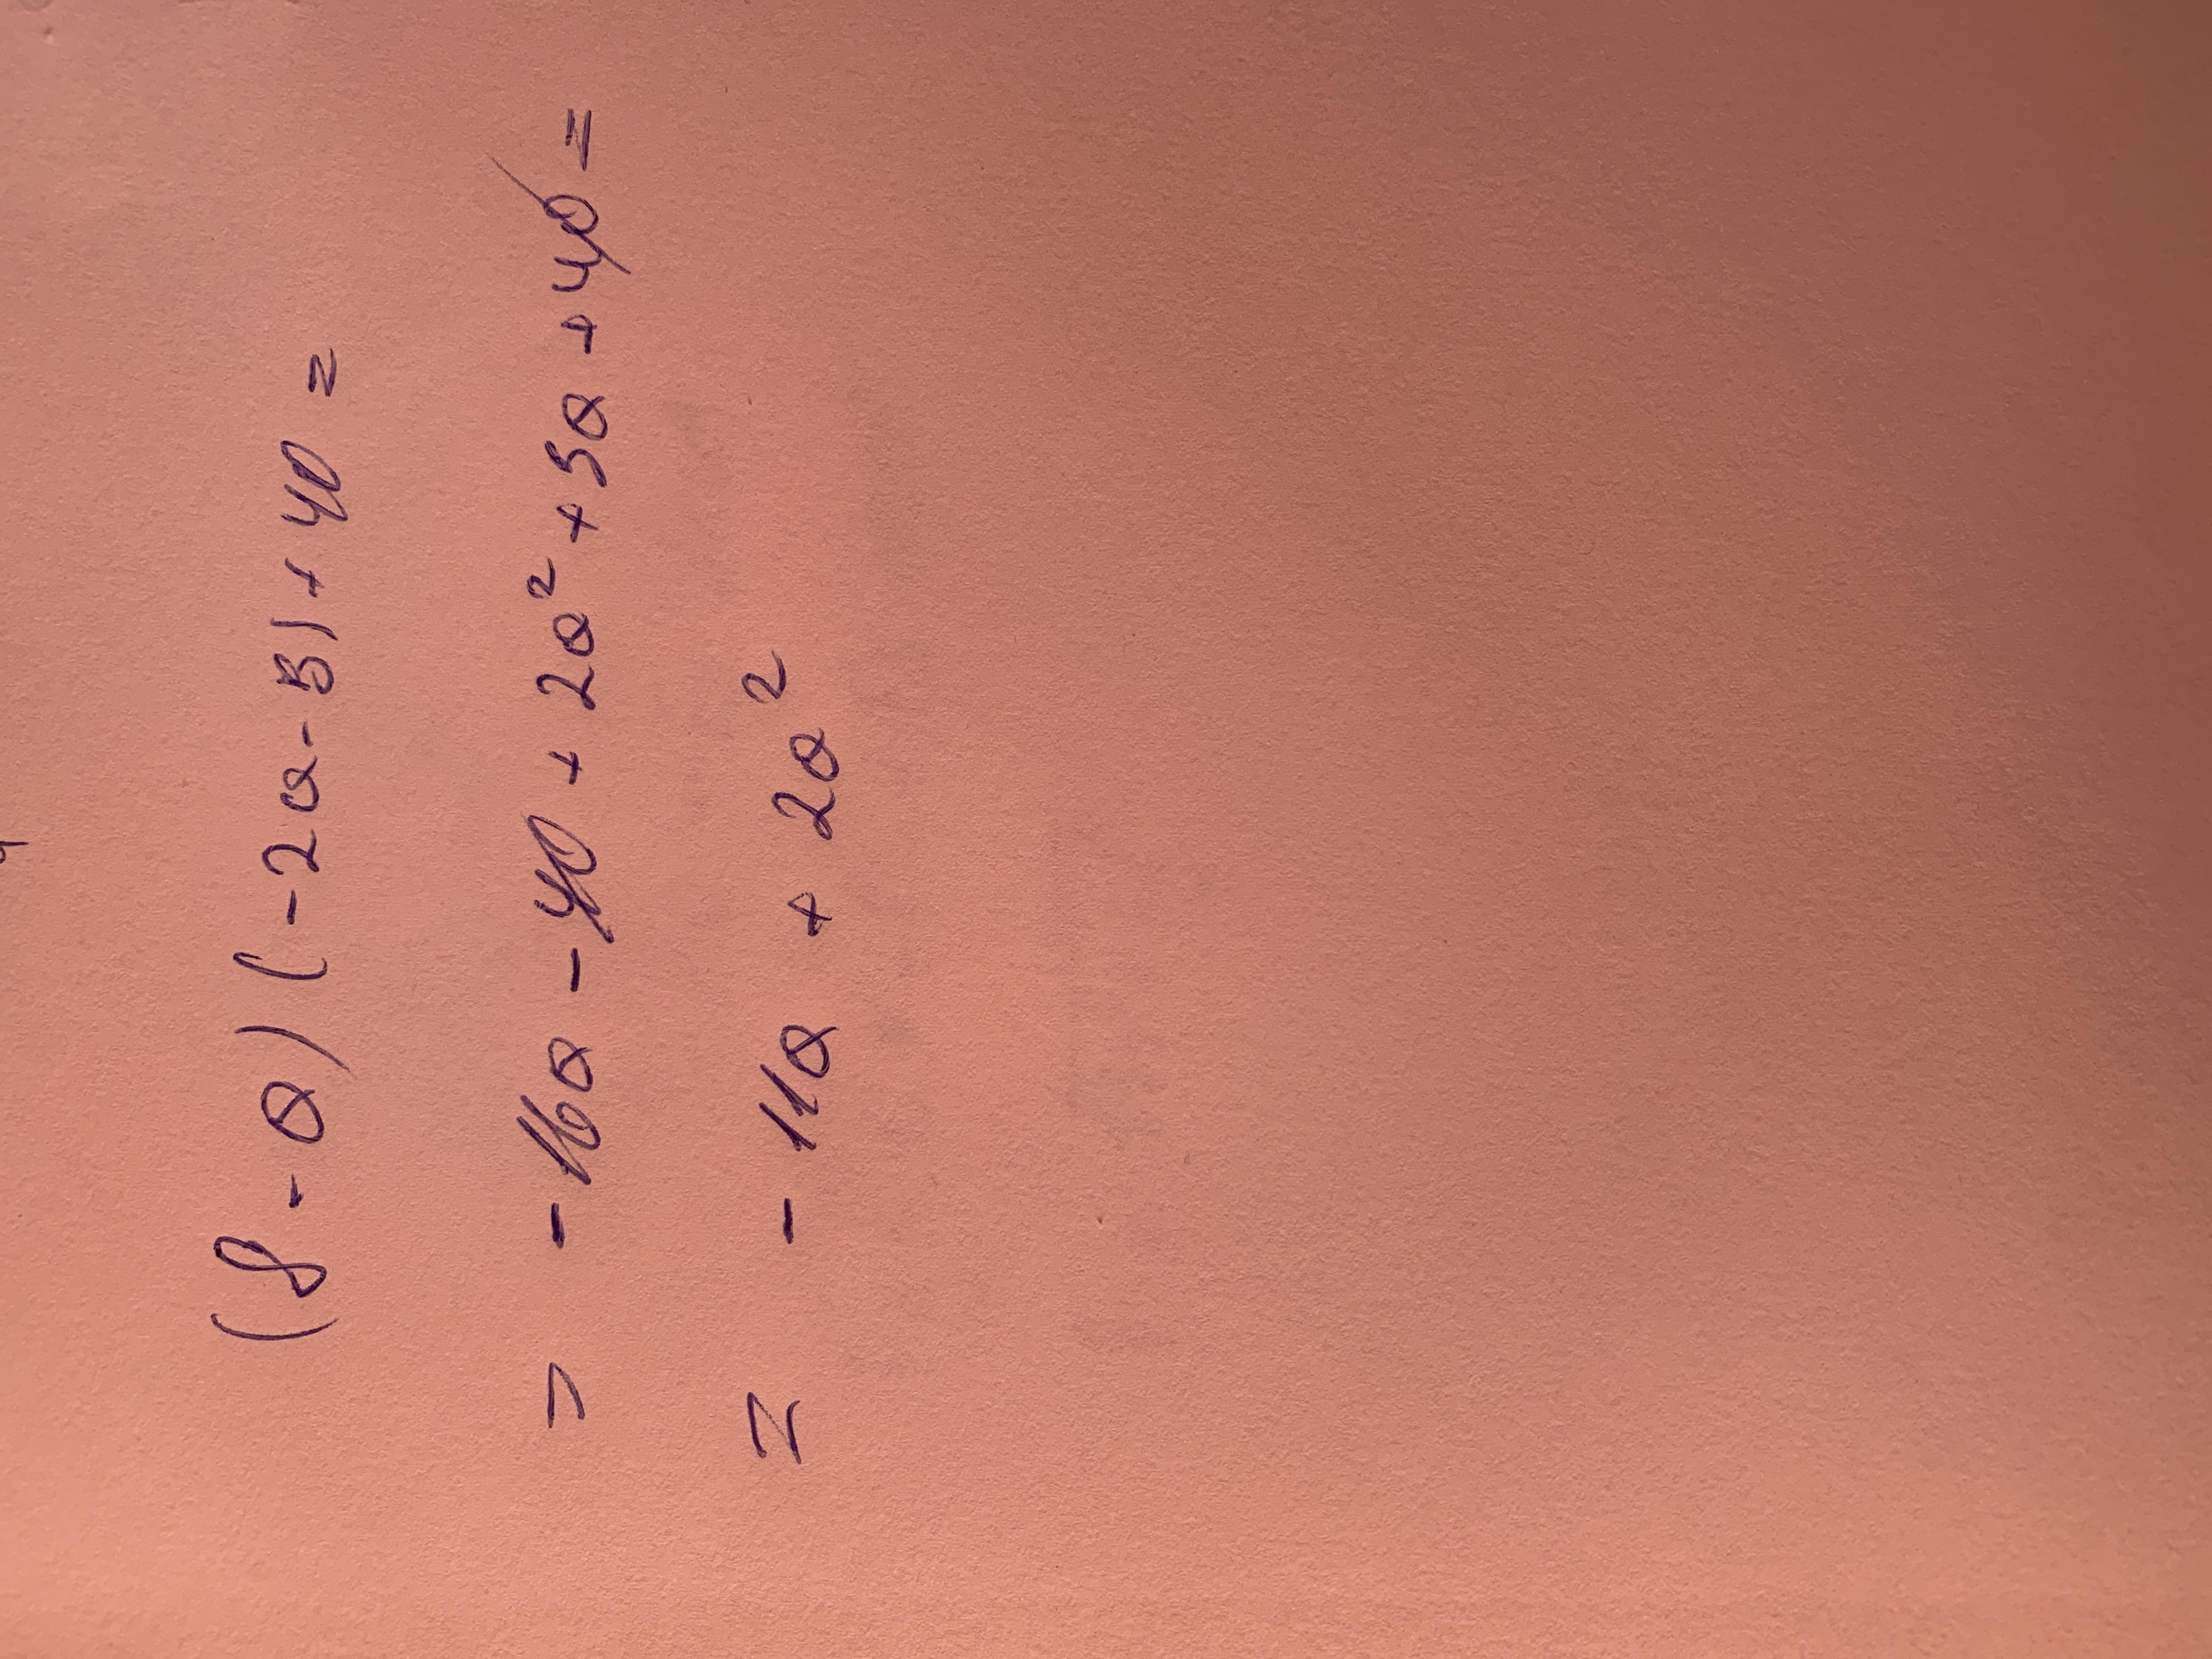 (8 - a) (-2a - 5) + 40 =
= -16a - 40 + 2a² + 5a + 40 =
= - 11a + 2a²